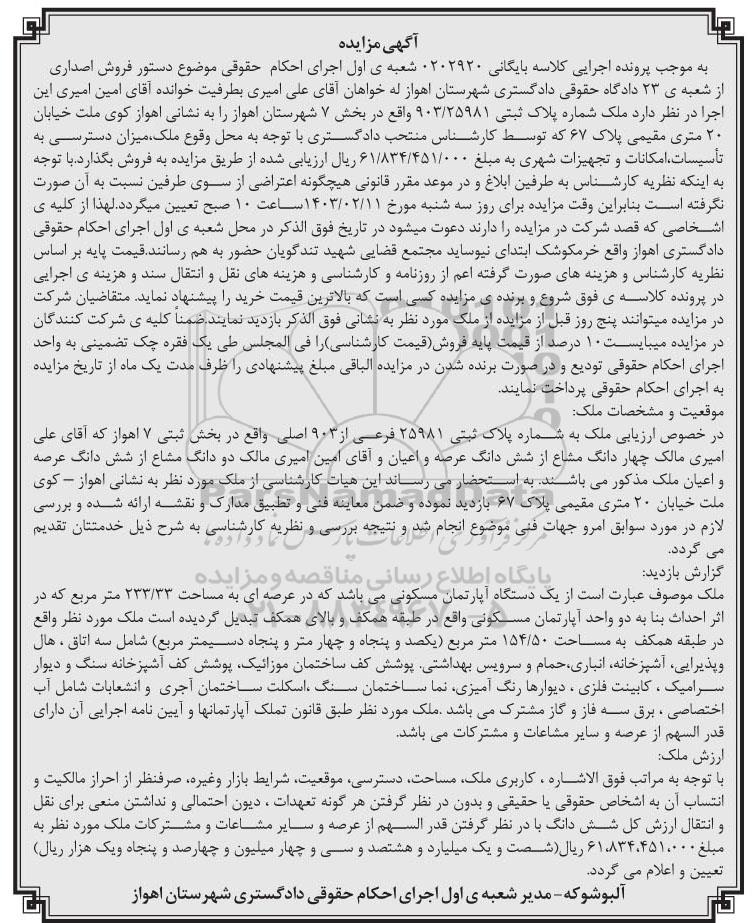 آگهی مزایده
به موجب پرونده اجرایی کلاسه بایگانی ۰۲۰۲۹۲۰ شعبه ی اول اجرای احکام حقوقی موضوع دستور فروش اصداری
از شعبه ی ۲۳ دادگاه حقوقی دادگستری شهرستان اهواز له خواهان آقای علی امیری بطرفیت خوانده آقای امین امیری این
اجرا در نظر دارد ملک شماره پلاک ثبتی ۹۰۳/۲۵۹۸۱ واقع در بخش ۷ شهرستان اهواز را به نشانی اهواز کوی ملت خیابان
۲۰ متری مقیمی پلاک ۶۷ که توسط کارشناس منتحب دادگستری با توجه به محل وقوع ملک،میزان دسترسی به
تأسیسات،امکانات و تجهیزات شهری به مبلغ ۶۱/۸۳۴/۴۵۱/۰۰۰ ریال ارزیابی شده از طریق مزایده به فروش بگذارد.با توجه
به اینکه نظریه کارشناس به طرفین ابلاغ و در موعد مقرر قانونی هیچگونه اعتراضی از سوی طرفین نسبت به آن صورت
نگرفته است بنابراین وقت مزایده برای روز سه شنبه مورخ ۱۴۰۳/۰۲/۱۱ساعت ۱۰ صبح تعیین میگردد.لهذا از کلیه ی
اشخاصی که قصد شرکت در مزایده را دارند دعوت میشود در تاریخ فوق الذکر در محل شعبه ی اول اجرای احکام حقوقی
دادگستری اهواز واقع خرمکوشک ابتدای نیوساید مجتمع قضایی شهید تندگویان حضور به هم رسانند.قیمت پایه بر اساس
نظریه کارشناس و هزینه های صورت گرفته اعم از روزنامه و کارشناسی و هزینه های نقل و انتقال سند و هزینه ی اجرایی
در پرونده کلاسه ی فوق شروع و برنده ی مزایده کسی است که بالاترین قیمت خرید را پیشنهاد نماید. متقاضیان شرکت
در مزایده میتوانند پنج روز قبل از مزایده از ملک مورد نظر به نشانی فوق الذکر بازدید نمایند.ضمناً کلیه ی شرکت کنندگان
در مزایده میبایست۱۰ درصد از قیمت پایه فروش(قیمت کارشناسی)را فی المجلس طی یک فقره چک تضمینی به واحد
اجرای احکام حقوقی تودیع و در صورت برنده شدن در مزایده الباقی مبلغ پیشنهادی را ظرف مدت یک ماه از تاریخ مزایده
به اجرای احکام حقوقی پرداخت نمایند.
موقعیت و مشخصات ملک:
در خصوص ارزیابی ملک به شماره پلاک ثبتی ۲۵۹۸۱ فرعی از۹۰۳ اصلی واقع در بخش ثبتی ۷ اهواز که آقای علی
امیری مالک چهار دانگ مشاع از شش دانگ عرصه و اعیان و آقای امین امیری مالک دو دانگ مشاع از شش دانگ عرصه
و اعیان ملک مذکور می باشند. به استحضار می رساند این هیات کارشناسی از ملک مورد نظر به نشانی اهواز – کوی
ملت خیابان ۲۰ متری مقیمی پلاک ۶۷ بازدید نموده و ضمن معاینه فنی و تطبیق مدارک و نقشه ارائه شده و بررسی
لازم در مورد سوابق امرو جهات فنی موضوع انجام شد و نتیجه بررسی و نظریه کارشناسی به شرح ذیل خدمتتان تقدیم
می گردد.
گزارش بازدید:
ملک موصوف عبارت است از یک دستگاه آپارتمان مسکونی می باشد که در عرصه ای به مساحت ۲۳۳/۳۳ متر مربع که در
اثر احداث بنا به دو واحد آپارتمان مسکونی واقع در طبقه همکف و بالای همکف تبدیل گردیده است ملک مورد نظر واقع
در طبقه همکف به مساحت ۱۵۴/۵۰ متر مربع (یکصد و پنجاه و چهار متر و پنجاه دسیمتر مربع) شامل سه اتاق ، هال
وپذیرایی، آشپزخانه، انباری،حمام و سرویس بهداشتی. پوشش کف ساختمان موزائیک، پوشش کف آشپزخانه سنگ و دیوار
سرامیک ، کابینت فلزی ، دیوارها رنگ آمیزی، نما ساختمان سنگ ،اسکلت ساختمان آجری و انشعابات شامل آب
اختصاصی ، برق سه فاز و گاز مشترک می باشد .ملک مورد نظر طبق قانون تملک آپارتمانها و آیین نامه اجرایی آن دارای
قدر السهم از عرصه و سایر مشاعات و مشترکات می باشد.
ارزش ملک:
با توجه به مراتب فوق الاشاره ، کاربری ملک، مساحت، دسترسی، موقعیت، شرایط بازار وغیره، صرفنظر از احراز مالکیت و
انتساب آن به اشخاص حقوقی یا حقیقی و بدون در نظر گرفتن هر گونه تعهدات ، دیون احتمالی و نداشتن منعی برای نقل
و انتقال ارزش کل شش دانگ با در نظر گرفتن قدر السهم از عرصه و سایر مشاعات و مشترکات ملک مورد نظر به
مبلغ۶۱،۸۳۴،۴۵۱،۰۰۰ ریال(شصت و یک میلیارد و هشتصد و سی و چهار میلیون و چهارصد و پنجاه ویک هزار ریال)
تعیین و اعلام می گردد.
آلبوشوکه – مدیر شعبه ی اول اجرای احکام حقوقی دادگستری شهرستان اهواز
ParsNamadData
مرکز فرآوری اطلاعات پارس نماد داده ها
پایگاه اطلاع رسانی مناقصه و مزایده
۰۲۱-۸۸۳۴۹۶۷۰-۵